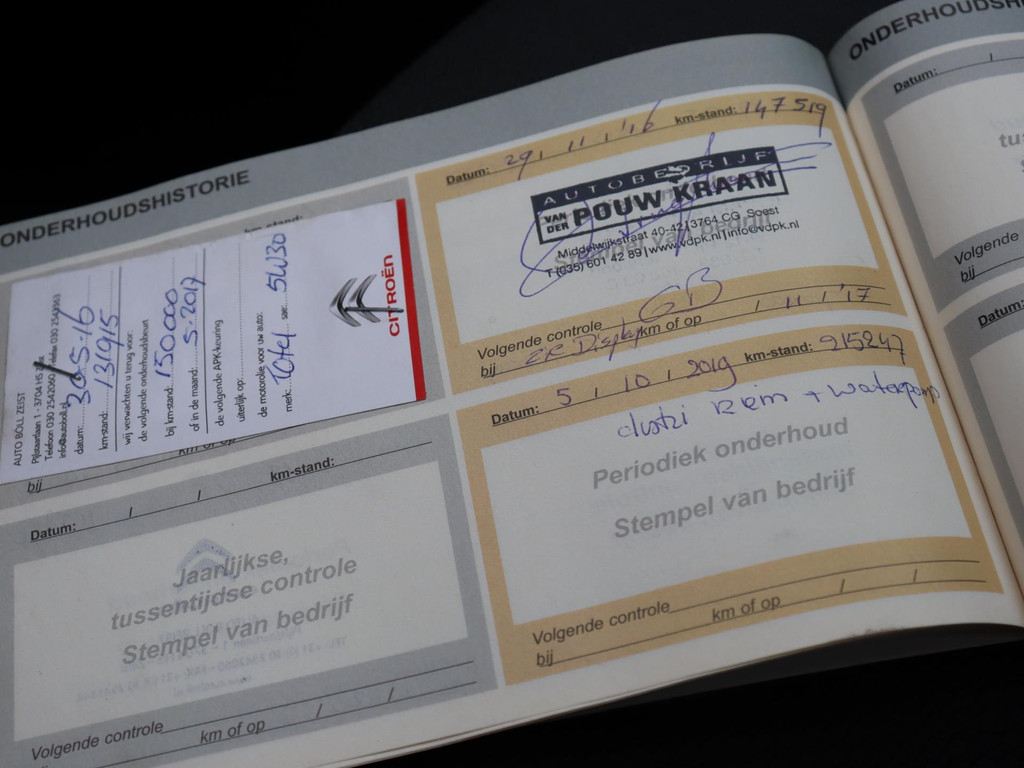 ONDERHOUDSHISTORIE
km-stand:
AUTO BÖLL ZEIST
Pijlstaartlaan 1 - 3704 HS
Telefoon 030 2542060
info@autoboll.nl
datum: 30-5-16
km-stand: 131915
wij verwachten u terug voor:
de volgende onderhoudsbeurt
bij km-stand: 150.000
of in de maand: 5-2017
de volgende APK-keuring
uiterlijk op:
de motorolie voor uw auto:
merk: Total sae: 5W30
CITROËN
bij km of op
Datum: / / km-stand:
Jaarlijkse,
tussentijdse controle
Stempel van bedrijf
Volgende controle
km of op / /
Datum: 29 / 11 / '16 km-stand: 147519
AUTOBEDRIJF
VAN DER POUW KRAAN
Middelwijkstraat 40-42 | 3764 CG Soest
T (035) 601 42 89 | www.vdpk.nl | info@vdpk.nl
Stempel van bedrijf
GB
Volgende controle
bij zie Display km of op / 11 / '17
Datum: 5 / 10 / 2019 km-stand: 215247
distri riem + waterpomp
Periodiek onderhoud
Stempel van bedrijf
Volgende controle
bij km of op / /
ONDERHOUDSH
Datum: /
tu
Volgende
bij
Datum: